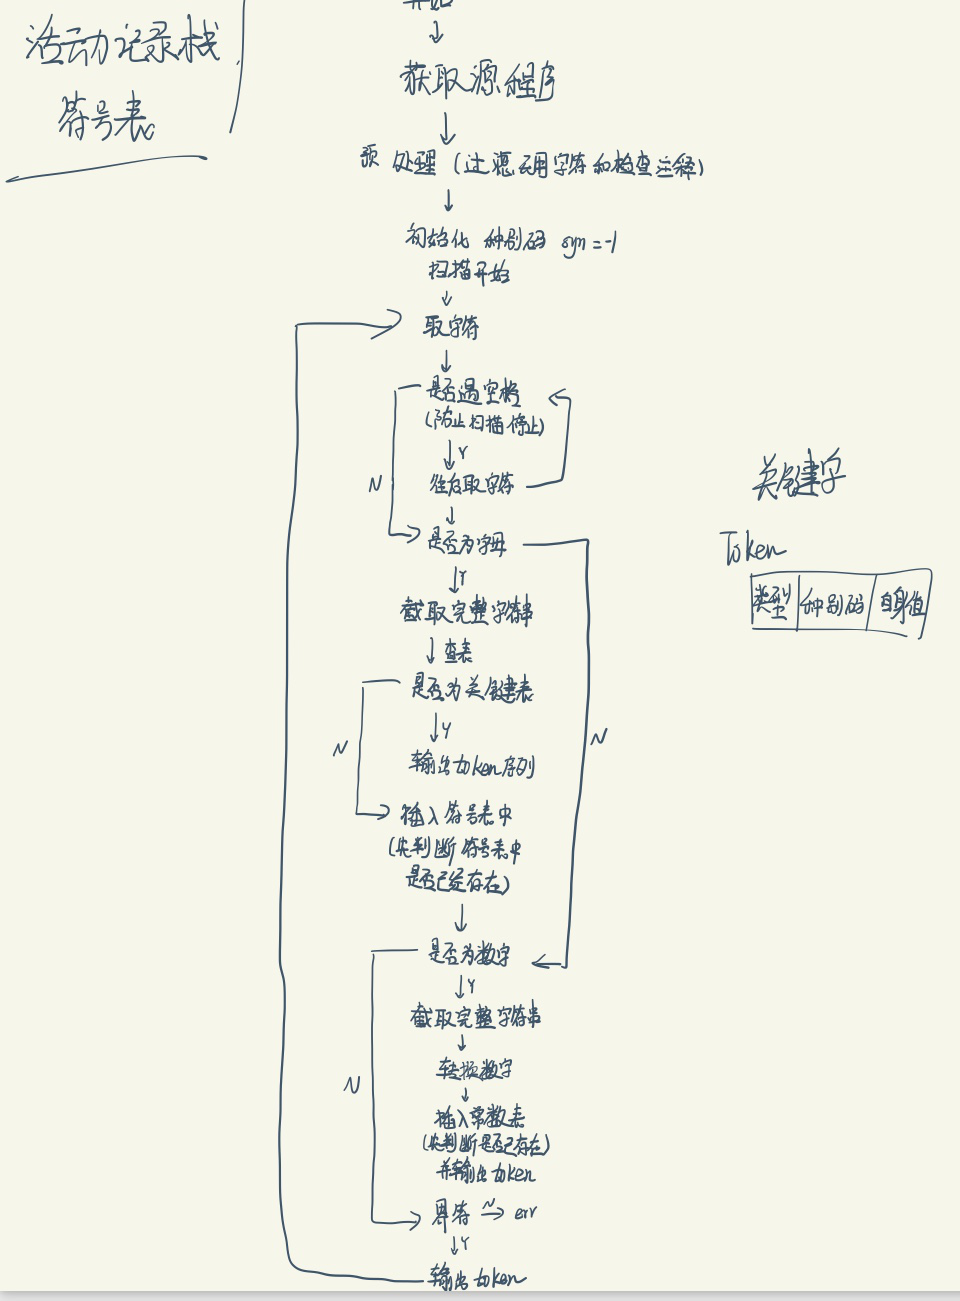 活动记录栈
符号表
开始
获取源程序
预处理（过滤无用字符和检查注释）
初始化 种别码 syn=-1
扫描开始
取字符
是否遇空格
（防止扫描停止）
Y
N
往后取字符
是否为字母
Y
截取完整字符串
查表
是否为关键表
Y
N
N
输出token序列
插入符号表中
（先判断符号表中
是否已经存在）
是否为数字
Y
截取完整字符串
转换数字
N
插入常数表
（先判断是否已存在）
并输出token
界符 N err
Y
输出token
关键字
Token
类型 种别码 自身值